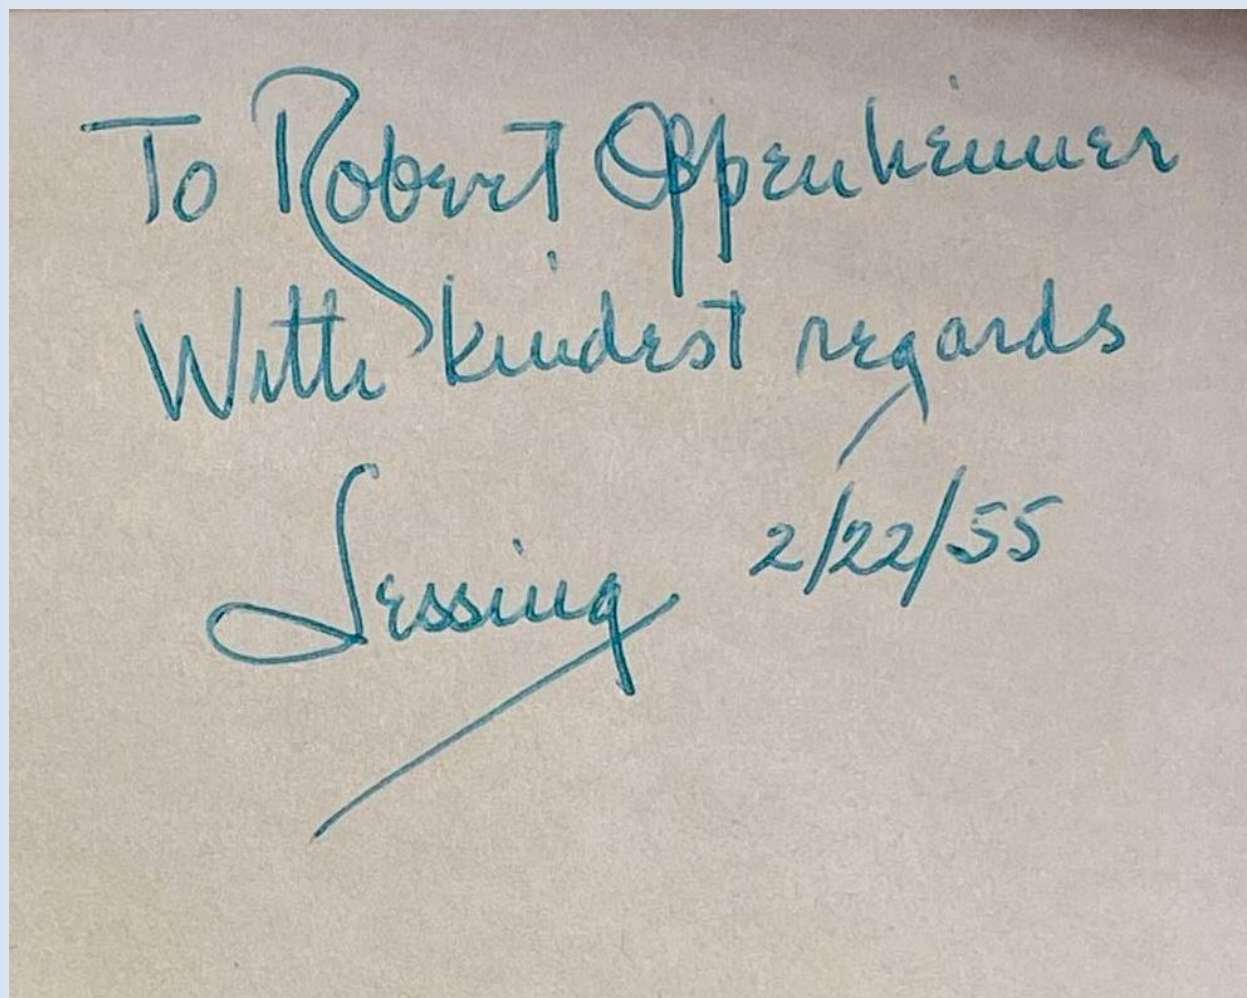 To Robert Oppenheimer
With kindest regards
Lessing 2/22/55